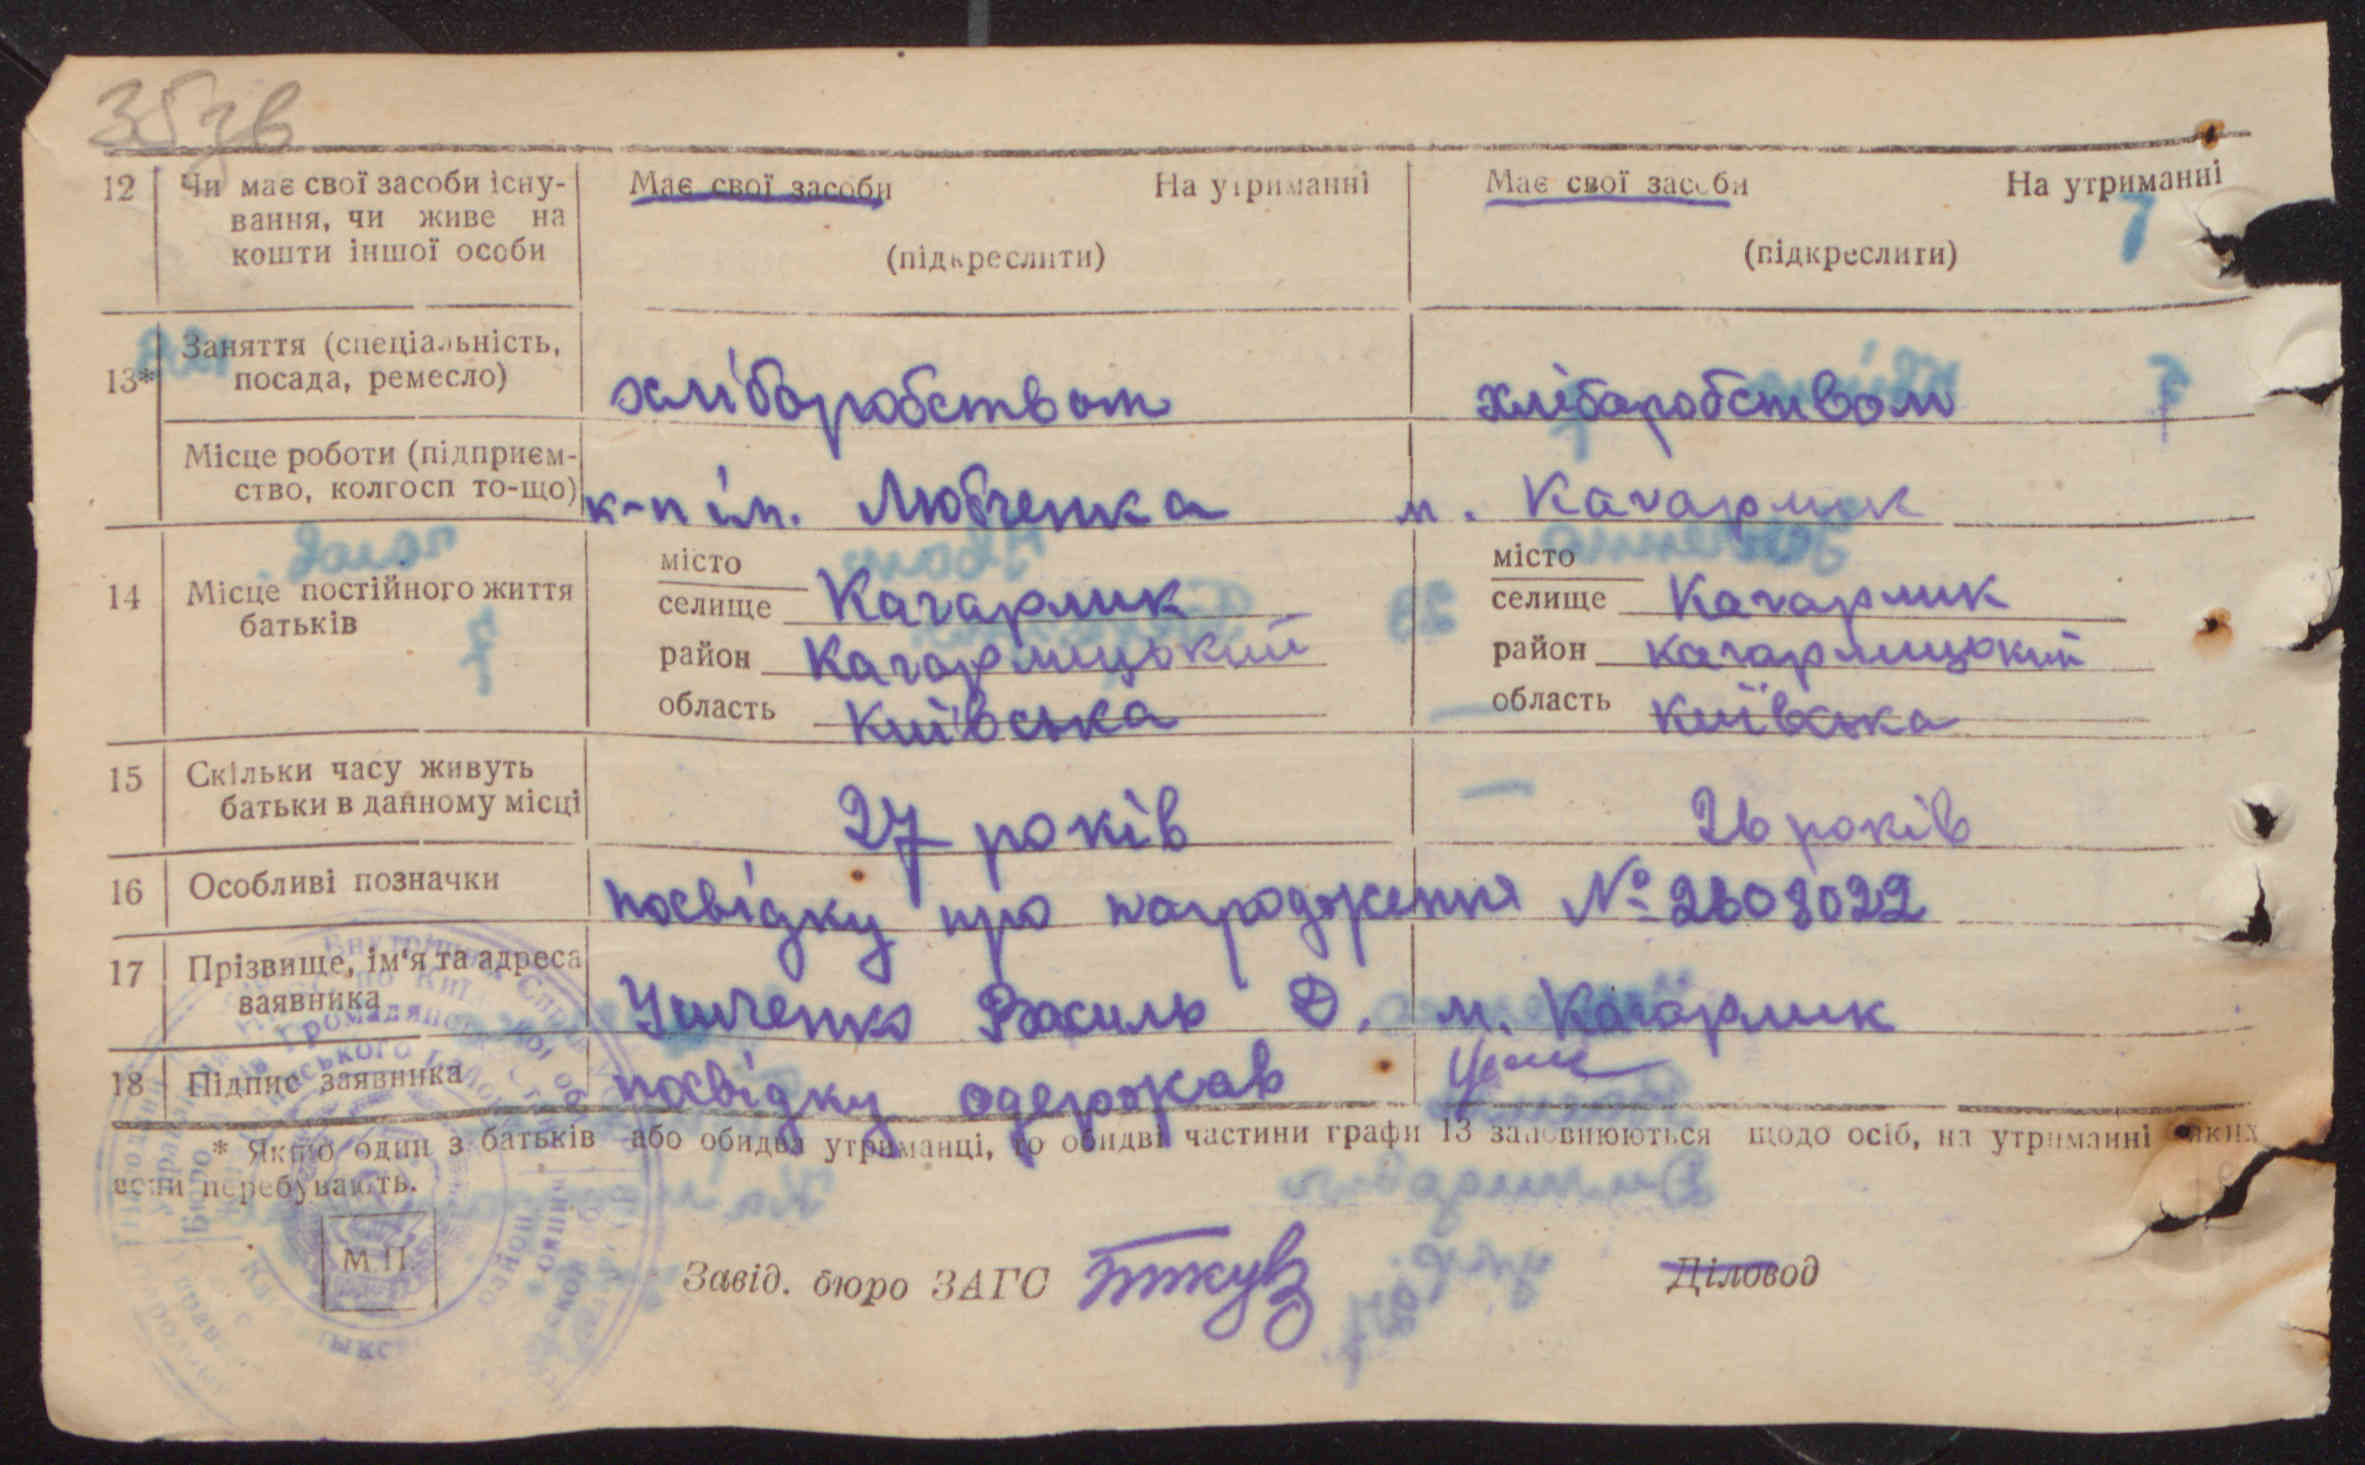 35зв
12 Чи має свої засоби існу- Має свої засоби На утриманні Має свої засоби На утриманні
вання, чи живе на
кошти іншої особи (підкреслити) (підкреслити)
Заняття (спеціальність,
13* посада, ремесло) хліборобством хліборобством
Місце роботи (підприєм-
ство, колгосп то-що) к-п ім. Любченка м. Кагарлик
місто місто
14 Місце постійного життя селище Кагарлик селище Кагарлик
батьків район Кагарлицький район Кагарлицький
область Київська область Київська
15 Скільки часу живуть
батьки в данному місці 27 років 26 років
16 Особливі позначки посвідку про народження № 2608022
17 Прізвище, ім'я та адреса
заявника Василь Д. м. Кагарлик
18 Підпис заявника посвідку одержав
* Якщо один з батьків або обидва утриманці, то обидві частини графи 13 заповнюються щодо осіб, на утриманні яких
вони перебувають.
М П.
Завід. бюро ЗАГС Діловод